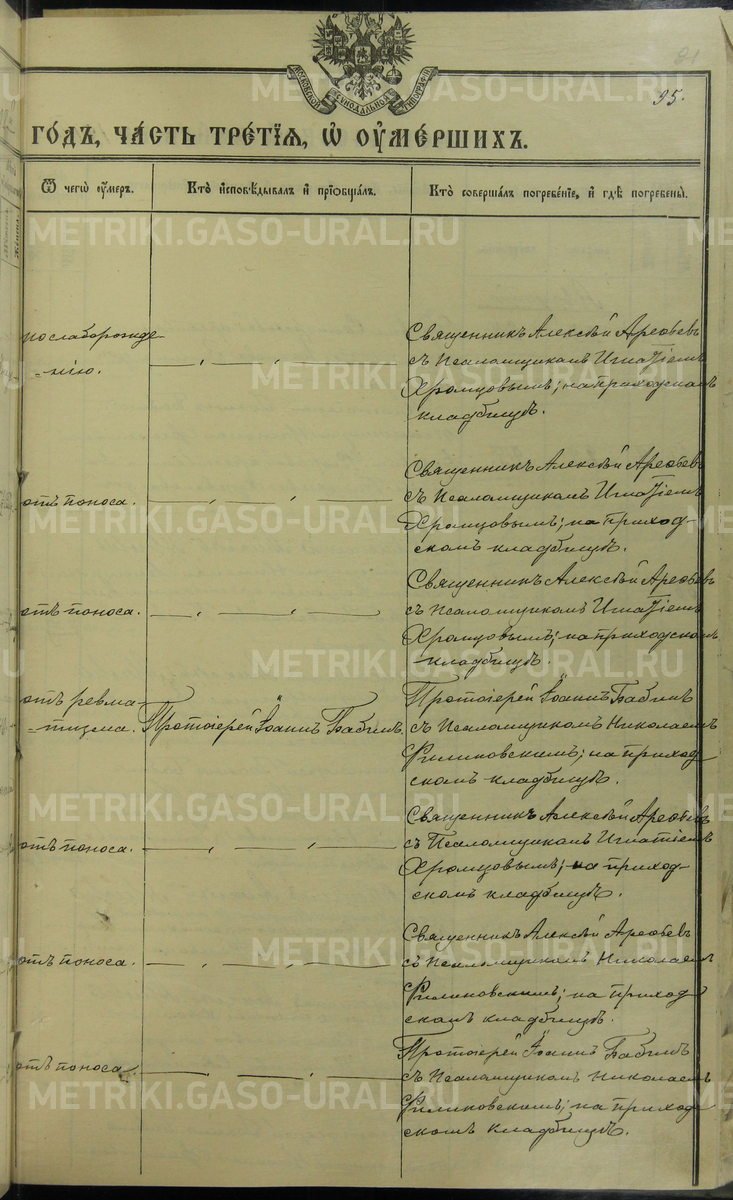 МОСКОВСКОЙ СѴНОДАЛЬНОЙ ТИПОГРАФІИ
81
95.
ГО́ДЪ, ЧА́СТЬ ТРЕ́ТІѦ, Ѡ҆ ОУ҆МЕ́РШИХЪ.
Ѿ чегѡ̀ оу҆́меръ.
Кто̀ и҆сповѣ́дывалъ и҆ прїѡбща́лъ.
Кто̀ соверша́лъ погребе́нїе, и҆ гдѣ̀ погребены̀.
по слаборожде-
=нію.
Священникъ Алексѣй Арефьевъ
съ Псаломщикомъ Игнатіемъ
Хромцовымъ; на приходскомъ
кладбищѣ.
отъ поноса.
Священникъ Алексѣй Арефьевъ
съ Псаломщикомъ Игнатіемъ
Хромцовымъ; на приход-
скомъ кладбищѣ.
отъ поноса.
Священникъ Алексѣй Арефьевъ
съ Псаломщикомъ Игнатіемъ
Хромцовымъ; на приходскомъ
кладбищѣ.
отъ ревма-
=тизма.
Протоіерей Іоаннъ Бабинъ.
Протоіерей Іоаннъ Бабинъ
съ Псаломщикомъ Николаемъ
Филиковскимъ; на приход
скомъ кладбищѣ.
отъ поноса.
Священникъ Алексѣй Арефьевъ
съ Псаломщикомъ Игнатіемъ
Хромцовымъ; на приход-
скомъ кладбищѣ.
отъ поноса.
Священникъ Алексѣй Арефьевъ
съ Псаломщикомъ Николаемъ
Филиковскимъ; на приход
скомъ кладбищѣ.
отъ поноса.
Протоіерей Іоаннъ Бабинъ
съ Псаломщикомъ Николаемъ
Филиковскомъ; на приход
скомъ кладбищѣ.
METRIKI.GASO-URAL.RU